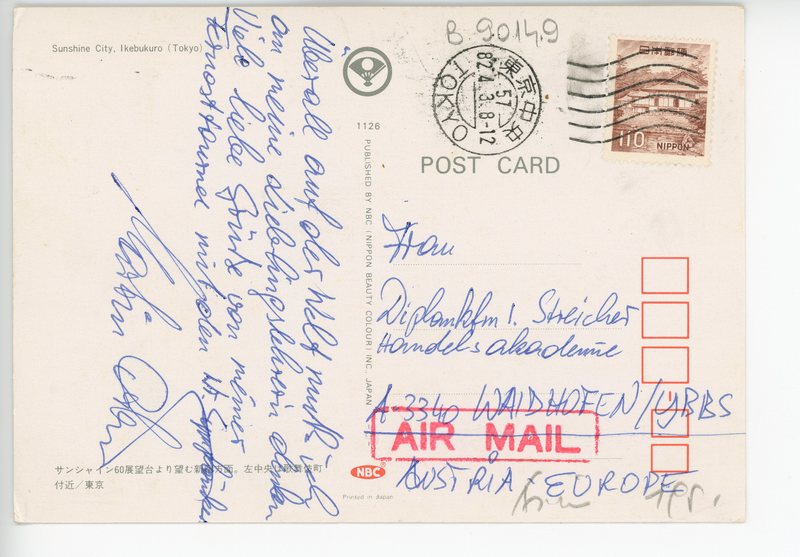 Sunshine City, Ikebukuro (Tokyo)
Überall auf der Welt muß ich
an meine Lieblingslehrerin denken
Viele liebe Grüße von meiner
Fernosttournee mit den W.
Martin
サンシャイン60展望台より望む新宿方面。左中央は歌舞伎町
付近/東京
B 90149
東京中央
57
82.4.3.8-12
TOKYO
日本郵便
110
NIPPON
1126
POST CARD
PUBLISHED BY NBC (NIPPON BEAUTY COLOUR) INC., JAPAN
Frau
Diplomkfm I. Streicher
Handelsakademie
A-3340 WAIDHOFEN/YBBS
AIR MAIL
AUSTRIA - EUROPE
NBC
Printed in Japan